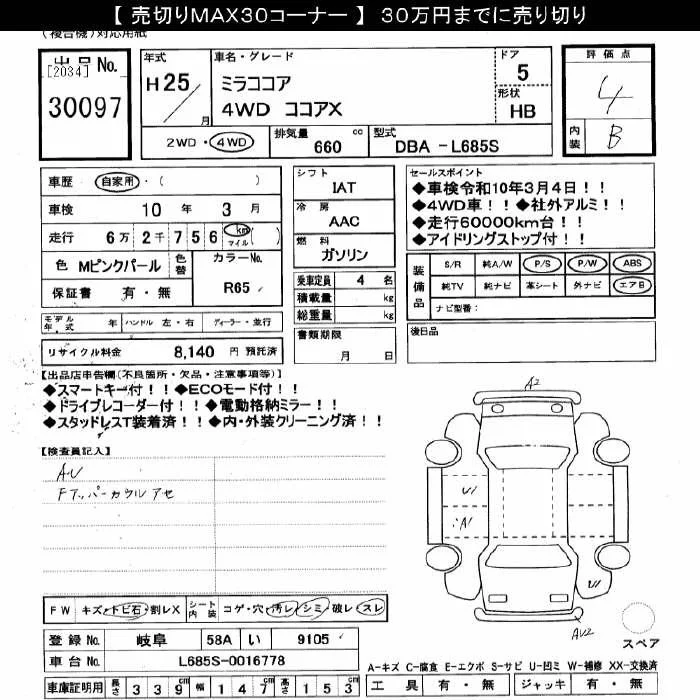 【 売切りMAX30コーナー 】 30万円までに売り切り
(複合機)対応用紙
出品No.
[2034]
30097
年式
H25/月
車名・グレード
ミラココア
4WD ココアX
ドア
5
形状
HB
評価点
4
内装
B
2WD・4WD
排気量
660 cc
型式
DBA -L685S
車歴 自家用・( )
車検 10 年 3 月
走行 6万 2千 7 5 6 km マイル ( )
色 Mピンクパール
色替
カラーNo.
R65
保証書 有・無
シフト
IAT
冷房
AAC
燃料
ガソリン
乗車定員 4 名
積載量 kg
総重量 kg
書類期限
月 日
セールスポイント
◆車検令和10年3月4日!!
◆4WD車!!◆社外アルミ!!
◆走行60000km台!!
◆アイドリングストップ付!!
装備品
S/R 純A/W P/S P/W ABS
純TV 純ナビ 革シート 外ナビ エアB
ナビ型番:
後日品
モデル年式 年 ハンドル 左・右 ディーラー・並行
リサイクル料金 8,140 円 預託済
【出品店申告欄(不良箇所・欠品・注意事項等)】
◆スマートキー付!!◆ECOモード付!!
◆ドライブレコーダー付!!◆電動格納ミラー!!
◆スタッドレスT装着済!!◆内・外装クリーニング済!!
【検査員記入】
AU
Fアッパーカウル アセ
A2
U1
A1
U1
AU2
スペア
FW キズ・トビ石・割レX
シート内装 コゲ・穴・汚レ・シミ・破レ・スレ
登録No. 岐阜 58A い 9105
車台No. L685S-0016778
車庫証明用 長さ 339 cm 幅 147 cm 高さ 153 cm
A-キズ C-腐食 E-エクボ S-サビ U-凹ミ W-補修 XX-交換済
工具 有・無 ジャッキ 有・無